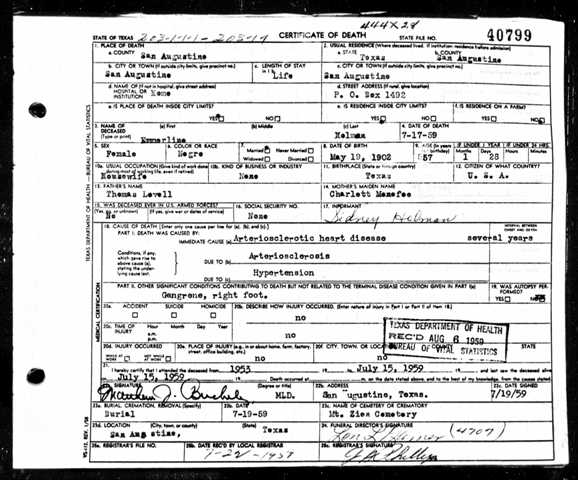 444X28
STATE OF TEXAS 203-1-1-1-203-14 CERTIFICATE OF DEATH STATE FILE NO. 40799
1. PLACE OF DEATH
a. COUNTY San Augustine
2. USUAL RESIDENCE (Where deceased lived. If institution: residence before admission)
a. STATE Texas b. COUNTY San Augustine
b. CITY OR TOWN (If outside city limits, give precinct no.) San Augustine
c. LENGTH OF STAY Life
c. CITY OR TOWN (If outside city limits, give precinct no.) San Augustine
d. NAME OF (If not in hospital, give street address) HOSPITAL OR INSTITUTION None
d. STREET ADDRESS (If rural, give location) P. O. Box 1492
e. IS PLACE OF DEATH INSIDE CITY LIMITS? YES NO
e. IS RESIDENCE INSIDE CITY LIMITS? YES NO
f. IS RESIDENCE ON A FARM? YES NO
3. NAME OF DECEASED (Type or print) (a) First (b) Middle (c) Last
4. DATE OF DEATH 7-17-59
5. SEX Female
6. COLOR OR RACE Negro
7. Married Never Married Widowed Divorced
8. DATE OF BIRTH May 19, 1902
9. AGE 57
IF UNDER 1 YEAR Months 1 Days 28
IF UNDER 24 HRS. Hours Min.
10a. USUAL OCCUPATION (Give kind of work done during most of working life, even if retired) Housewife
10b. KIND OF BUSINESS OR INDUSTRY None
11. BIRTHPLACE (State or foreign country) Texas
12. CITIZEN OF WHAT COUNTRY? U. S. A.
13. FATHER'S NAME Thomas Lovell
14. MOTHER'S MAIDEN NAME Charlett Menefee
15. WAS DECEASED EVER IN U.S. ARMED FORCES? (Yes, no, or unknown) (If yes, give war or dates of service) No
16. SOCIAL SECURITY NO. None
17. INFORMANT Sidney
18. CAUSE OF DEATH (Enter only one cause per line for (a), (b), and (c).)
PART I. DEATH WAS CAUSED BY: INTERVAL BETWEEN ONSET AND DEATH
IMMEDIATE CAUSE (a) Arteriosclerotic heart disease several years
Conditions, if any, which gave rise to above cause (a), stating the underlying cause last.
DUE TO (b) Arteriosclerosis
DUE TO (c) Hypertension
PART II. OTHER SIGNIFICANT CONDITIONS CONTRIBUTING TO DEATH BUT NOT RELATED TO THE TERMINAL DISEASE CONDITION GIVEN IN PART I(a)
Gangrene, right foot.
19. WAS AUTOPSY PERFORMED? YES NO
20a. ACCIDENT SUICIDE HOMICIDE
20b. DESCRIBE HOW INJURY OCCURRED. (Enter nature of injury in Part I or Part II of item 18.)
no
20c. TIME OF INJURY Hour Month Day Year a.m. p.m. no
20d. INJURY OCCURRED WHILE AT WORK NOT WHILE AT WORK
20e. PLACE OF INJURY (e.g., in or about home, farm, factory, street, office building, etc.) no
20f. CITY, TOWN, OR LOCATION COUNTY STATE
TEXAS DEPARTMENT OF HEALTH
REC'D AUG 6 1959
BUREAU OF VITAL STATISTICS
21. I hereby certify that I attended the deceased from 1953 to July 15, 1959 and last saw the deceased alive
July 15, 1959 Death occurred at m. on the date stated above, and to the best of my knowledge, from the causes stated.
22a. SIGNATURE (Degree or title) M.D.
22b. ADDRESS San Augustine, Texas.
22c. DATE SIGNED 7/19/59
23a. BURIAL, CREMATION, REMOVAL (Specify) Burial
23b. DATE 7-19-59
23c. NAME OF CEMETERY OR CREMATORY Mt. Zion Cemetery
23d. LOCATION (City, town, or county) (State) San Aug stine, Texas
24. FUNERAL DIRECTOR'S SIGNATURE (4707)
25a. REGISTRAR'S FILE NO.
25b. DATE REC'D BY LOCAL REGISTRAR 7-22-1959
25c. REGISTRAR'S SIGNATURE
TEXAS DEPARTMENT OF HEALTH—BUREAU OF VITAL STATISTICS
MEDICAL CERTIFICATION